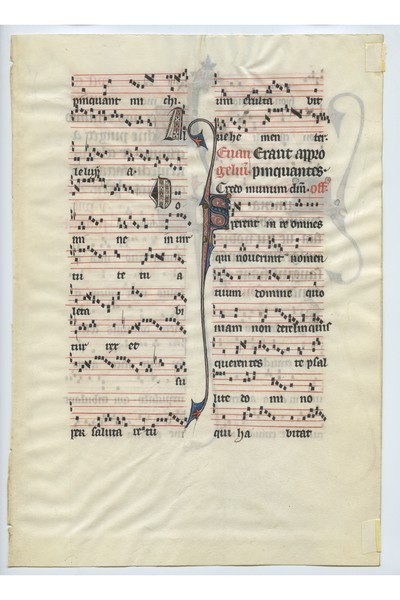 pinquant mi chi.
A
leluya a.
D o
mi ne in uir
tu te tu a
leta bi
tur rex et
su
per saluta re tu
um exulta bit
uehe men ter.
Euan Erant appro
geliũ. pinquantes.
Credo in unum dm̃. off
S perent in te omnes
qui nouerunt nomen
tuum domine quo
niam non derelinquis
querentes te psal
lite do mi no
qui ha bitat